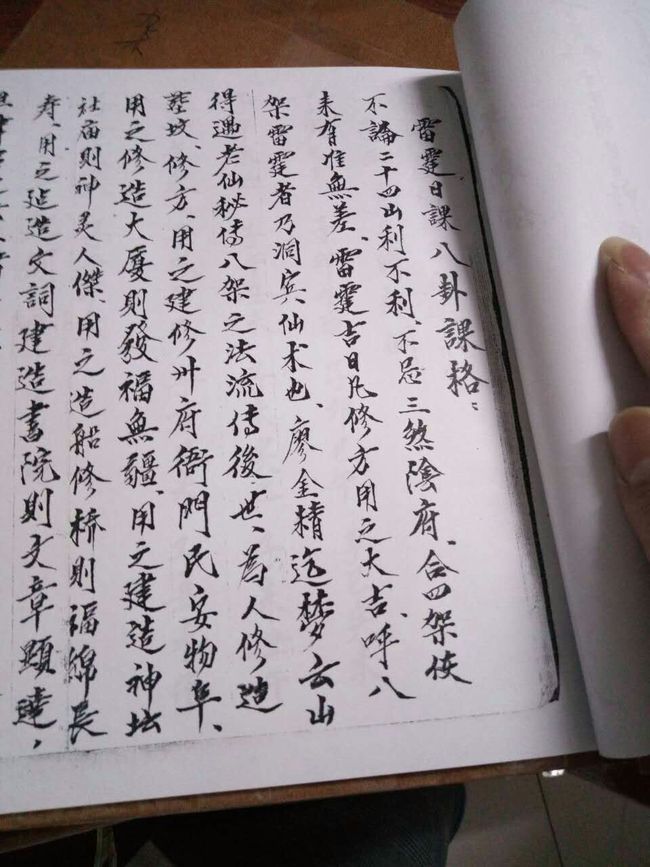 雷霆日課八卦課格：
不論二十四山利不利、不忌三煞陰府、合四架使
未有准無差、雷霆吉日凡修方用之大吉、呼八
架雷霆者乃洞宾仙术也、廖金精迄梦云山
得遇老仙秘传八架之法流传後世、為人修造
茔坟、修方、用之建修州府衙門民安物阜、
用之修造大厦則發福無疆、用之建造神坛
社庙則神灵人傑、用之造船修桥則福綿長
寿、用之造文詞建造書院則文章顯達，